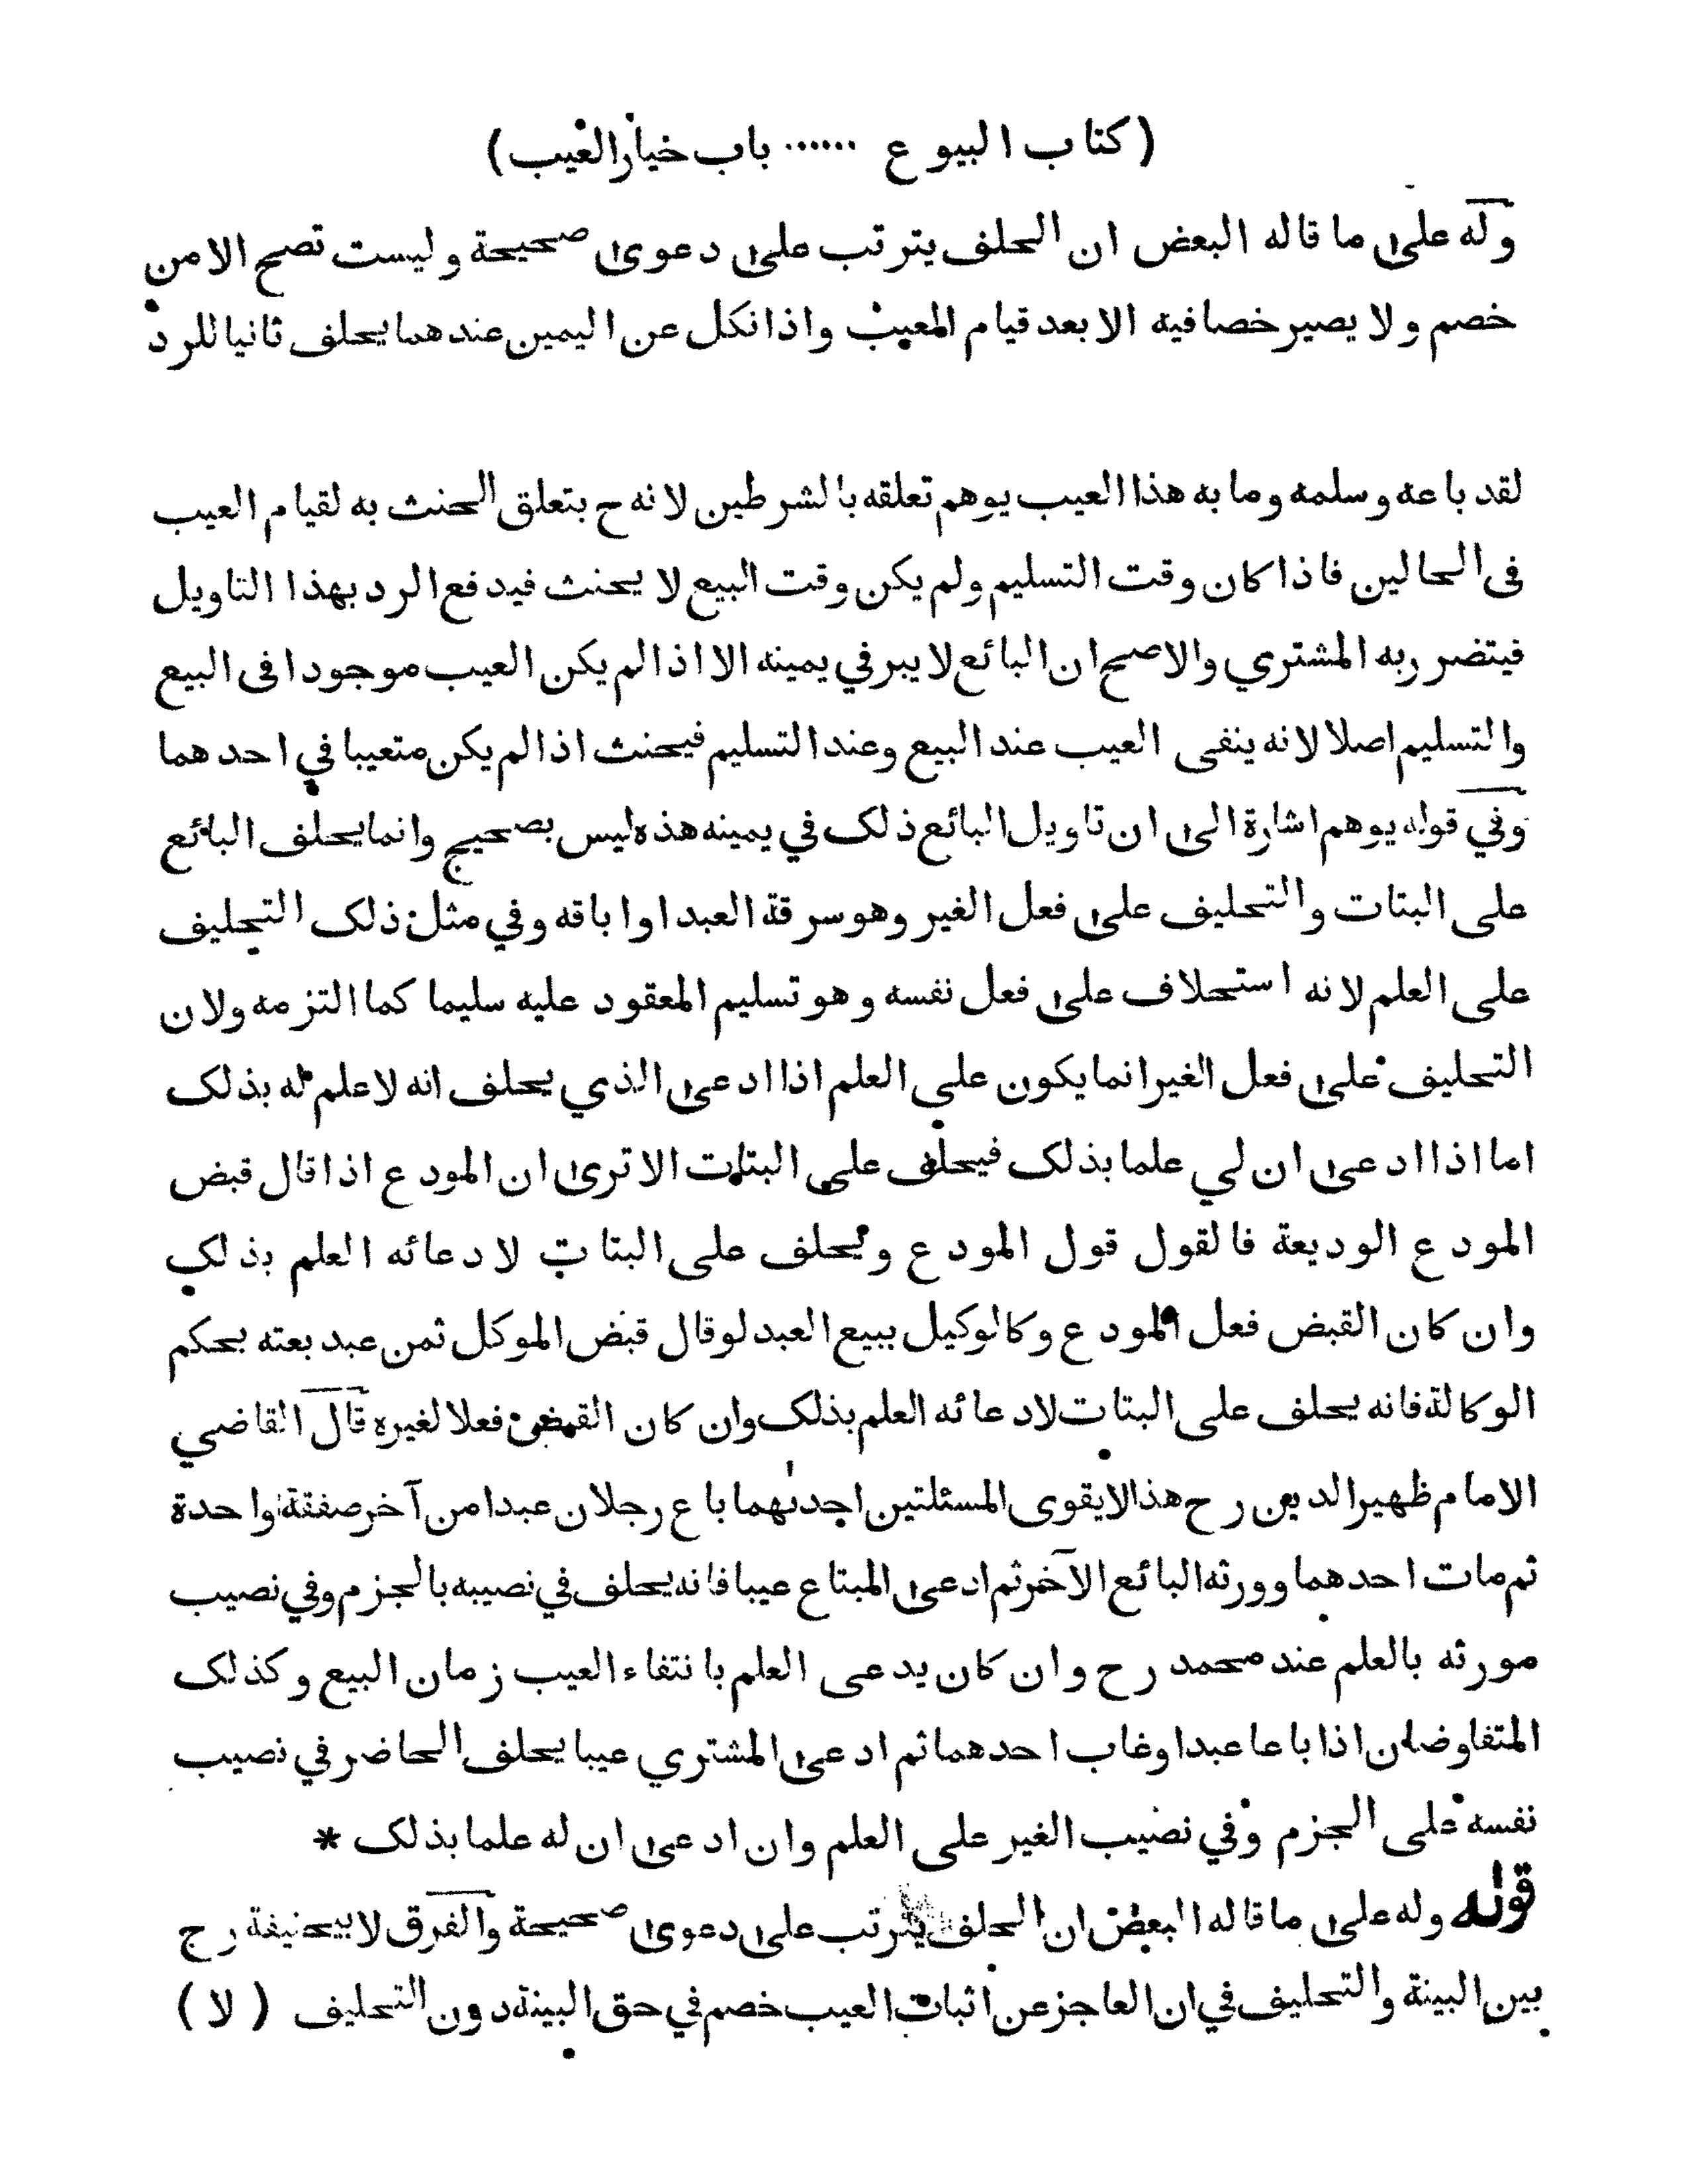 (كتاب البيوع ...... باب خيار العيب)
وله على ما قاله البعض ان الحلف يترتب على دعوى صحيحة وليست تصح الا من
خصم ولا يصير خصما فيه الا بعد قيام المعيب واذا نكل عن اليمين عندهما يحلف ثانيا للرد
لقد باعه وسلمه وما به هذا العيب يوهم تعلقه بالشرطين لانه ح يتعلق الحنث به لقيام العيب
فى الحالين فاذا كان وقت التسليم ولم يكن وقت البيع لا يحنث فيدفع الرد بهذا التاويل
فيتضرر به المشتري والاصح ان البائع لا يبر في يمينه الا اذا لم يكن العيب موجودا فى البيع
والتسليم اصلا لانه ينفى العيب عند البيع وعند التسليم فيحنث اذا لم يكن متعيبا في احدهما
وفي قوله يوهم اشارة الى ان تاويل البائع ذلك في يمينه هذه ليس بصحيح وانما يحلف البائع
على البتات والتحليف على فعل الغير وهو سرقة العبد او اباقه وفي مثل ذلك التحليف
على العلم لانه استحلاف على فعل نفسه وهو تسليم المعقود عليه سليما كما التزمه ولان
التحليف على فعل الغير انما يكون على العلم اذا ادعى الذي يحلف انه لا علم له بذلك
اما اذا ادعى ان لي علما بذلك فيحلف على البتات الا ترى ان المودع اذا قال قبض
المودع الوديعة فالقول قول المودع ويحلف على البتات لادعائه العلم بذلك
وان كان القبض فعل المودع وكالوكيل ببيع العبد لو قال قبض الموكل ثمن عبد بعته بحكم
الوكالة فانه يحلف على البتات لادعائه العلم بذلك وان كان القبض فعلا لغيره قال القاضي
الامام ظهير الدين رح هذا لا يقوى المسئلتين احدىهما باع رجلان عبدا من آخر صفقة واحدة
ثم مات احدهما وورثه البائع الآخر ثم ادعى المبتاع عيبا فانه يحلف في نصيبه بالجزم وفي نصيب
مورثه بالعلم عند محمد رح وان كان يدعى العلم بانتفاء العيب زمان البيع وكذلك
المتفاوضان اذا باعا عبدا وغاب احدهما ثم ادعى المشتري عيبا يحلف الحاضر في نصيب
نفسه على الجزم وفي نصيب الغير على العلم وان ادعى ان له علما بذلك *
قوله وله على ما قاله البعض ان الحلف يترتب على دعوى صحيحة والفرق لابيحنيفة رح
بين البينة والتحليف في ان العاجز عن اثبات العيب خصم في حق البينة دون التحليف (لا)